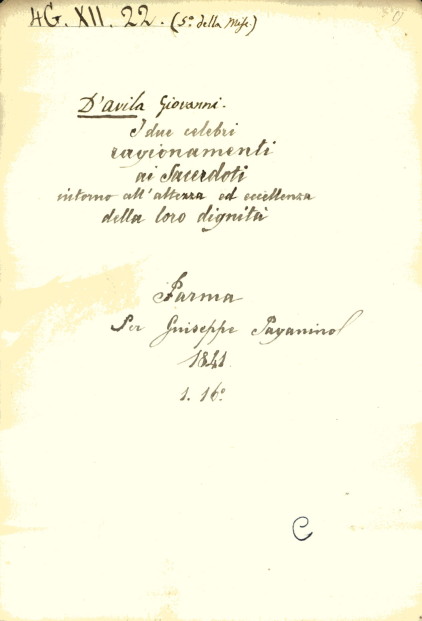 4G. XII. 22. (5º della Misc.)
D'avila Giovanni.
I due celebri
ragionamenti
ai Sacerdoti
intorno all'altezza ed eccellenza
della loro dignità
Parma
Per Guiseppe Paganino
1841
1. 16º
C